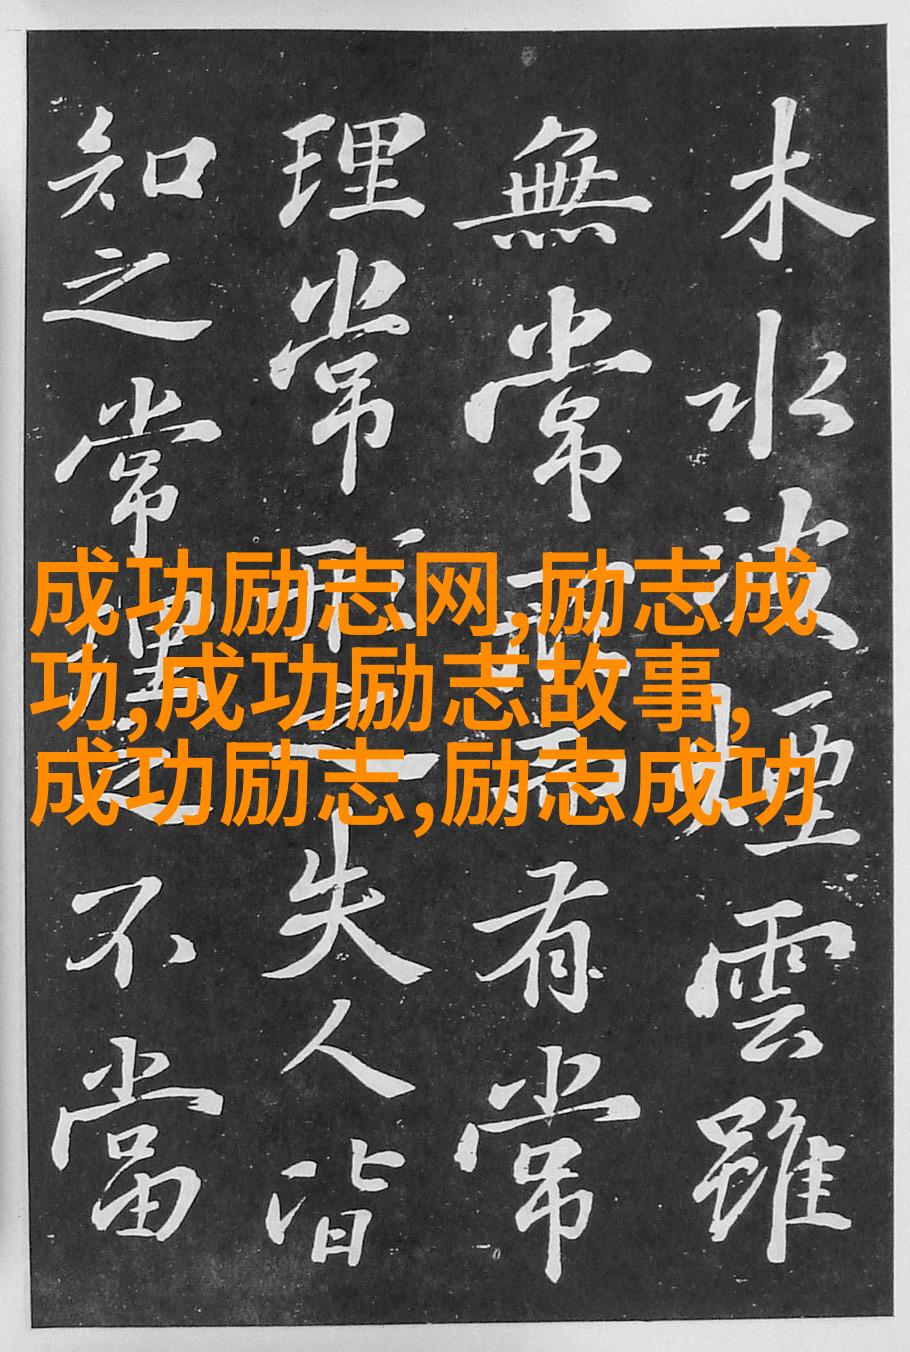 木水波煙雲雖
無常形而有常
理常形之失人皆
知之常理之不當
成功励志网,励志成
功,成功励志故事,
成功励志,励志成功